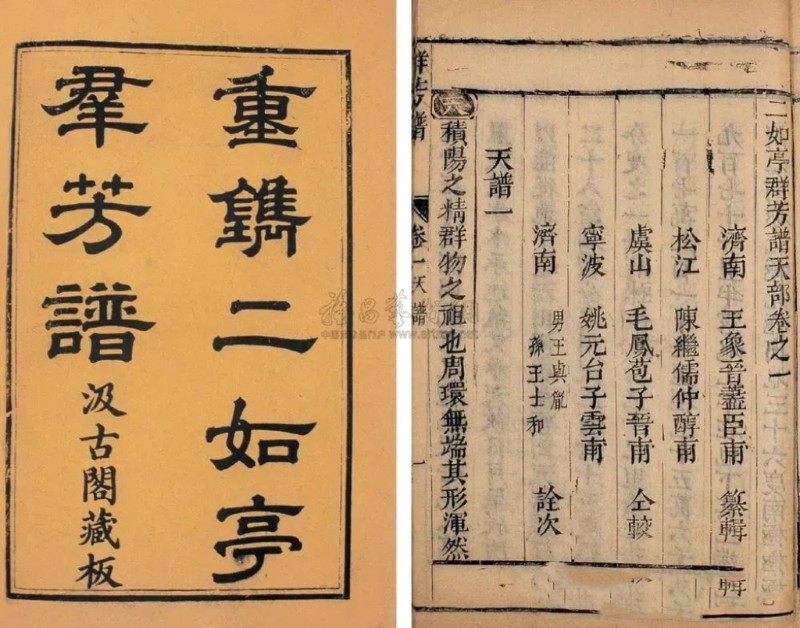 重鐫二如亭
羣芳譜
汲古閣藏板
二如亭群芳譜天部卷之一
濟南 王象晉藎臣甫 纂輯
松江 陳繼儒仲醇甫
虞山 毛鳳苞子晉甫 仝較
寧波 姚元台子雲甫
濟南
男王與胤
孫王士和
詮次
天譜一
積陽之精群物之祖也周環無端其形渾然
群芳譜
卷一天譜
一